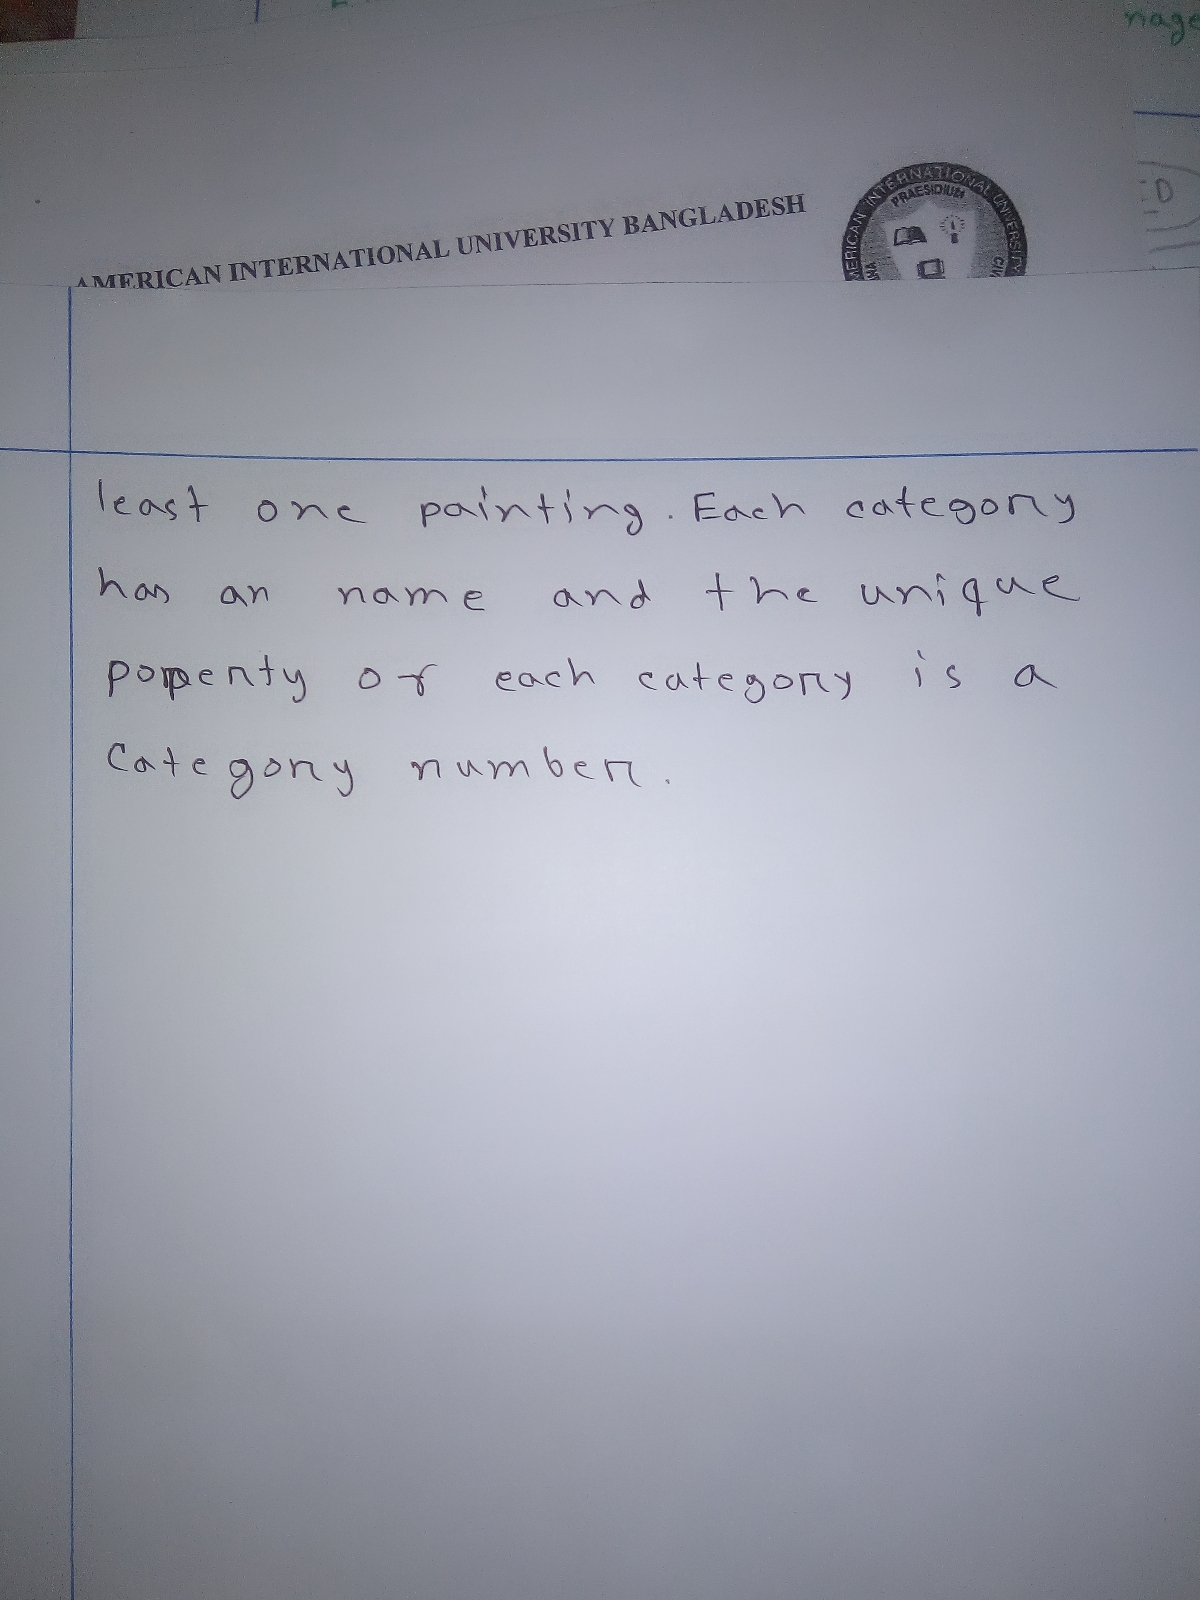 nage
AMERICAN INTERNATIONAL UNIVERSITY BANGLADESH
AMERICAN INTERNATIONAL UNIVERSITY
PRAESIDIUM
least one painting. Each category
has an name and the unique
poperty of each category is a
Category number.